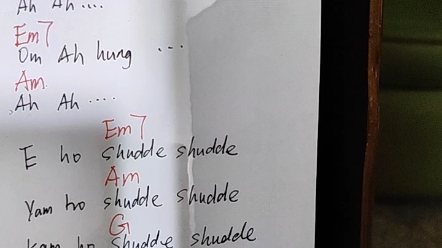 Ah Ah ....
Em7
Om Ah hung ...
Am
Ah Ah ....
Em7
E ho shudde shudde
Am
Yam ho shudde shudde
G
kam ho shudde shudde